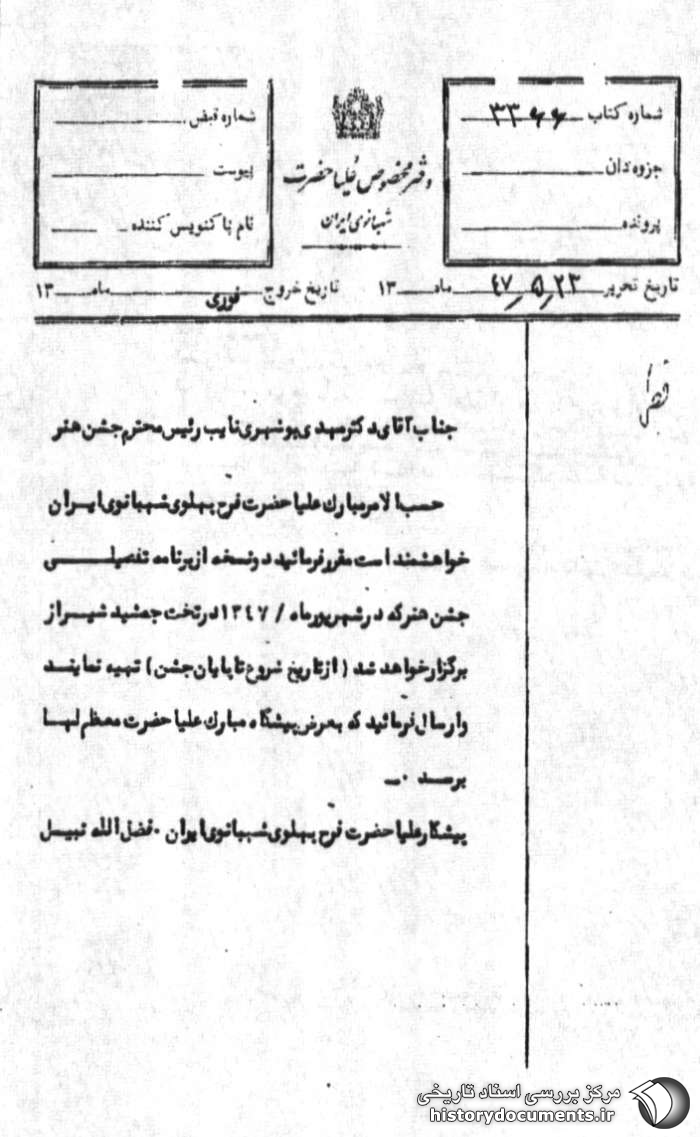 شماره کتاب ۳۳۶۶
جزوه‌دان
پرونده
دفتر مخصوص علیا حضرت
شهبانوی ایران
شماره قبض
پیوست
نام پاکنویس کننده
تاریخ تحریر ۲۳ر۵ر۴۷ ماه ۱۳
تاریخ خروج فوری ماه ۱۳
جناب آقای دکتر مهدی بوشهری نایب رئیس محترم جشن هنر
حسب الامر مبارك علیا حضرت فرح پهلوی شهبانوی ایران
خواهشمند است مقرر فرمائید دو نسخه از برنامه تفصیلی
جشن هنر که در شهریور ماه / ۱۳۴۷ در تخت جمشید شیراز
برگزار خواهد شد (از تاریخ شروع تا پایان جشن) تهیه نمایند
و ارسال فرمائید که بعرض پیشگاه مبارك علیا حضرت معظم لها
برسد ۰ــ
پیشکار علیا حضرت فرح پهلوی شهبانوی ایران ۰ فضل الله نبیل
مرکز بررسی اسناد تاریخی
historydocuments.ir